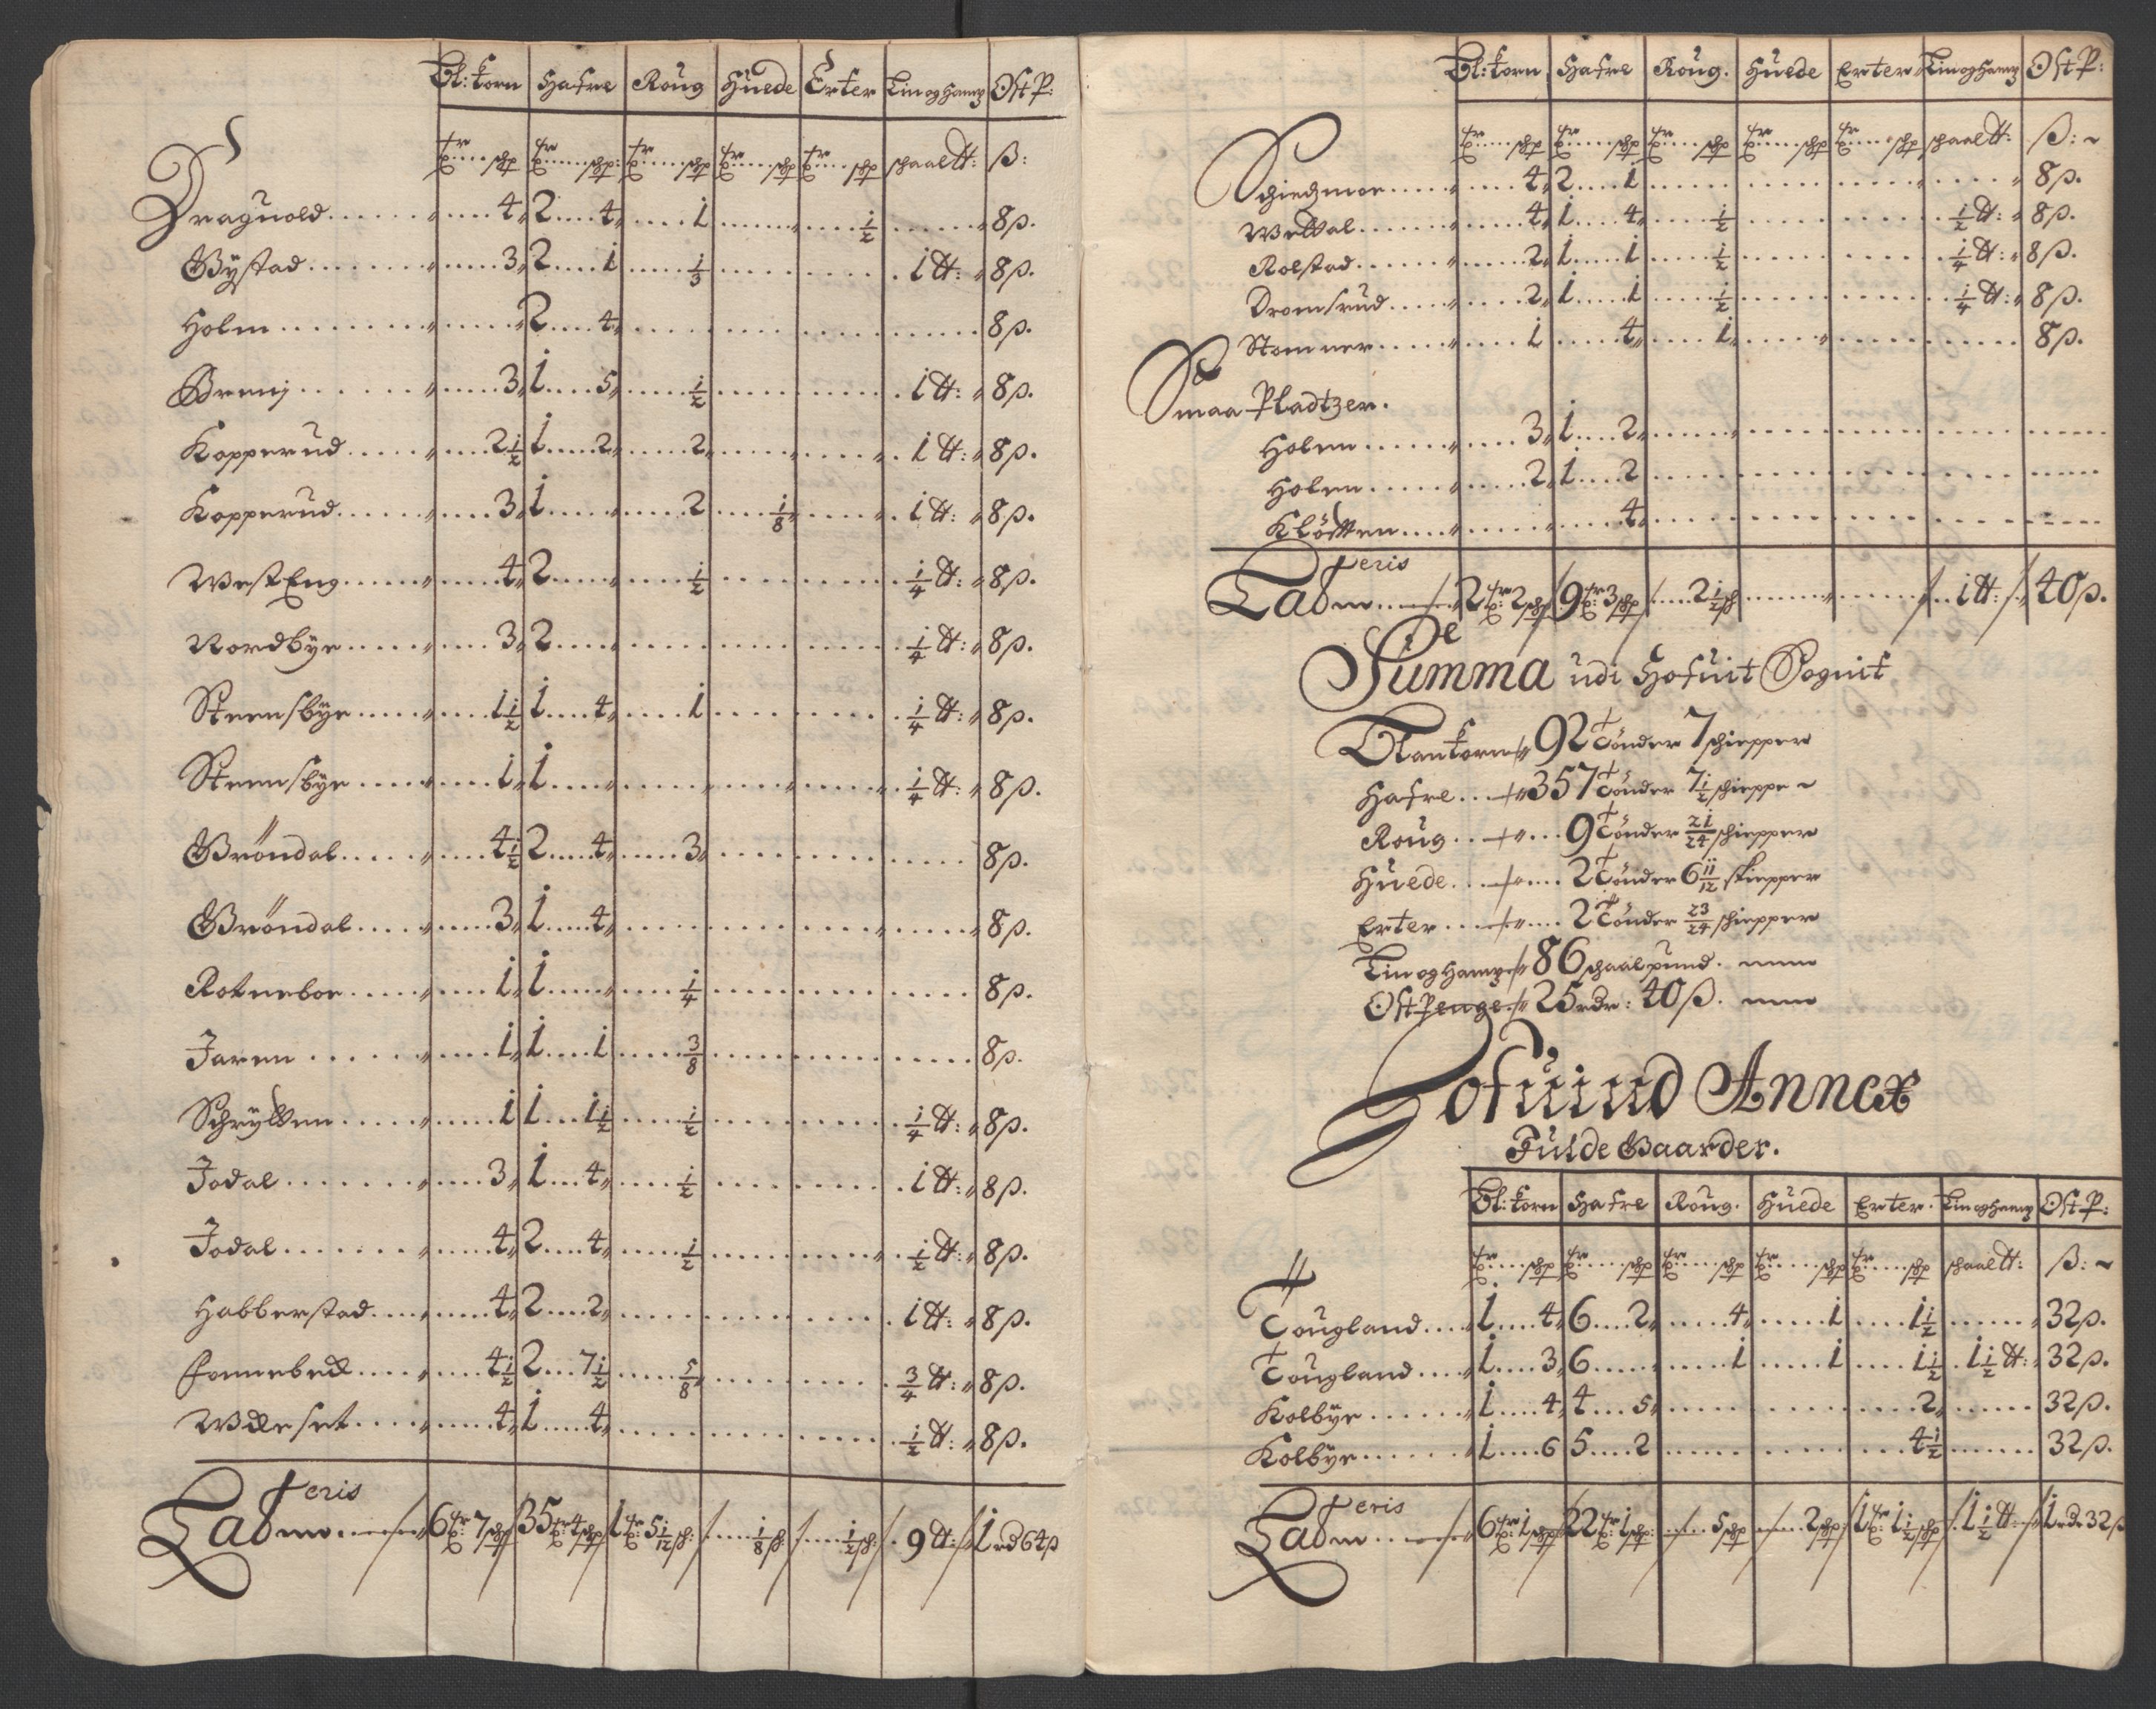 Bl: Korn Hafre Roug Huede Erter Lin og Hamp Ost P:
tr schp tr schp: tr schp tr schp tr schp schaal ℔: ß:
Draguold 4 2 4 1 1/2 8 ß.
Gystad 3 2 1 1/3 1 ℔: 8 ß.
Holm 2 4 8 ß.
Brenj 3 1 5 1/2 1 ℔: 8 ß.
Kopperud 2 1/2 1 2 2 1 ℔: 8 ß.
Kopperud 3 1 2 1/8 1 ℔: 8 ß.
West Eng 4 2 1/2 1/4 ℔: 8 ß.
Nordbye 3 2 1/4 ℔: 8 ß.
Steensbye 1 1/2 1 4 1 1/4 ℔: 8 ß.
Steensbye 1 1 1/4 ℔: 8 ß.
Gröndal 4 1/2 2 4 3 8 ß.
Gröndal 3 1 4 8 ß.
Rotneboe 1 1 1/4 8 ß.
Jaren 1 1 1 3/8 8 ß.
Schrytten 1 1 1 1/2 1/2 1/4 ℔: 8 ß.
Jodal 3 1 4 1/2 1 ℔: 8 ß.
Jodal 4 2 4 1/2 1/2 ℔: 8 ß.
Habberstad 4 2 2 1 ℔: 8 ß.
Fonnebeck 4 1/2 2 7 1/2 5/8 3/4 ℔: 8 ß.
4 1 4 1/2 ℔: 8 ß.
Lateris 6 tr: 7 schp 35 tr 4 schp 1 tr: 5 1/12 sch: 1/8 sch: 1/2 sch: 9 ℔: 1 rd 64 ß
Bl: Korn Hafre Roug. Huede Erter Lin og Hamp Ost P:
tr schp tr schp tr schp tr schp tr schp schaal ℔: ß:
Schiedzmoe 4 2 1 8 ß.
Wettal 4 1 4 1/2 1/2 ℔: 8 ß.
Rolstad 2 1 1 1/2 1/4 ℔: 8 ß.
Dromsrud 2 1 1 1/2 1/4 ℔: 8 ß.
Stomner 1 4 1 8 ß.
Smaa Pladtzer.
Holen 3 1 2
Holen 2 1 2
Klötten 4
Lateris 2 tr: 2 schp 9 tr: 3 schp 2 1/2 sch 1 ℔: 40 ß.
Summa udi Hofuit Sognit
Blankorn 92 Tönder 7 schiepper
Hafre 357 Tönder 7 1/2 schieppe
Roug 9 Tönder 21/24 schiepper
Huede 2 Tönder 6 11/12 skiepper
Erter 2 Tönder 23/24 schiepper
Lin og Hamp 86 schaalpund.
Ost Penge 25 rdr: 40 ß.
Hofuind Annex
Fulde Gaarder.
Bl: Korn Hafre Roug. Huede Erter. Lin og Hamp Ost P:
tr schp tr schp tr schp tr schp tr schp schaal ℔: ß:
Tougland 1 4 6 2 4 1 1 1/2 32 ß.
Tougland 1 3 6 1 1 1 1/2 1 1/2 ℔: 32 ß.
Kolbye 1 4 4 5 2 32 ß.
Kolbye 1 6 5 2 4 1/2 32 ß.
Lateris 6 tr: 1 schp 22 tr: 1 schp: 5 schp 2 schp 1 tr: 1 1/2 schp 1 1/2 ℔: 1 rdr 32 ß